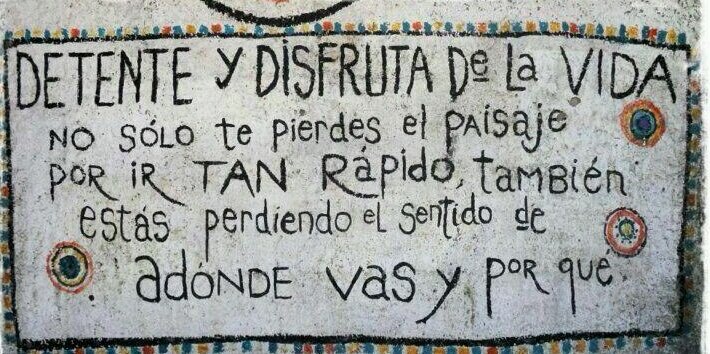 DETENTE Y DISFRUTA De La VIDA
NO SÓLO te pierdes el PAisaje
POR iR TAN Rápido, tamBién
estás perdiendo el sentido de
adÓNDE vas y por qué.